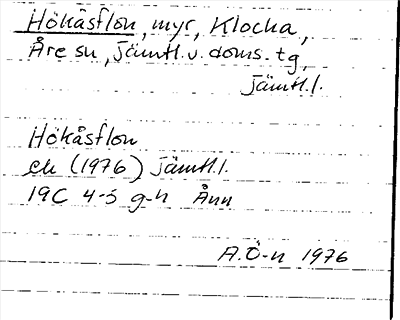 Hökåsflon, myr, Klocka,
Åre sn, Jämtl. v. doms. tg,
Jämtl. l.
Hökåsflon
ek (1976) Jämtl. l.
19C 4-5 g-h Ånn
A.Ö-n 1976